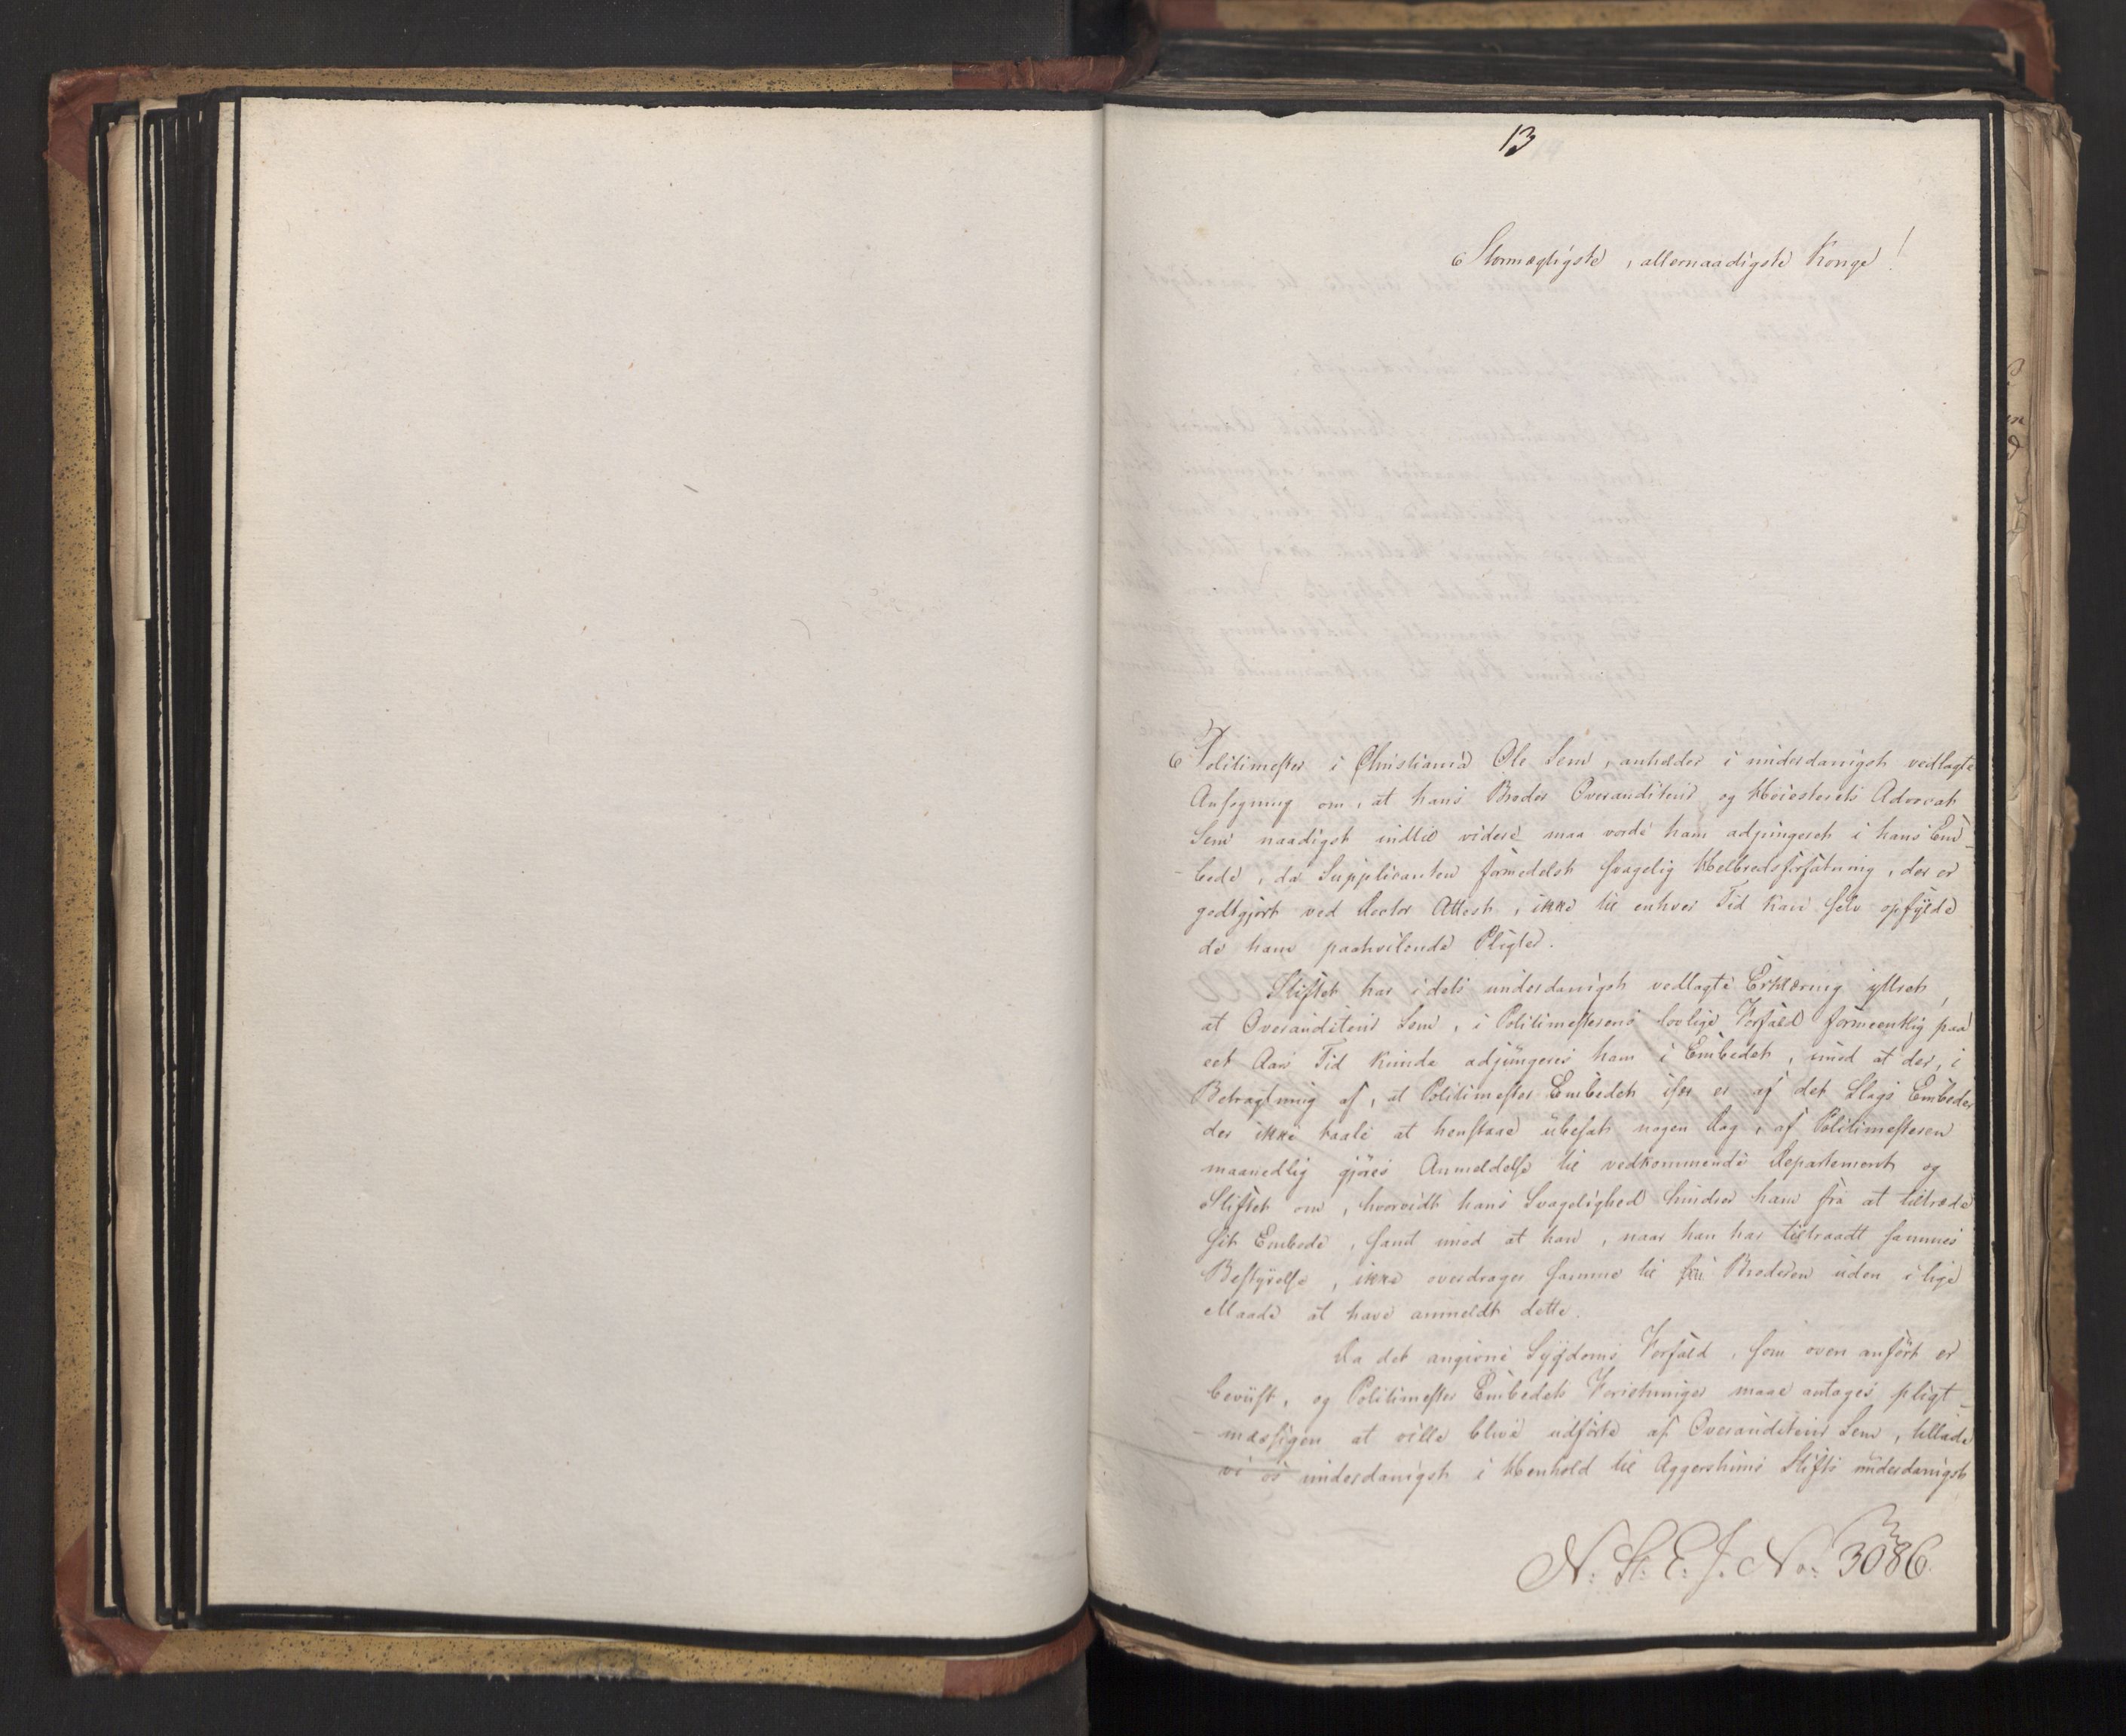 13
Stormægtigste, allernaadigste Konge!
Politimester i Christiania Ole Sem, anholder i underdanigst vedlagte
Ansøgning om, at hans Broder Overauditeur og Høiesterets Advocat
Sem naadigst indtil videre maa vorde ham adjungeret i hans Em-
-bede, da Supplicanten formedelst svagelig Helbredsforfatning, der er
godtgjort ved Doctor Attest, ikke til enhver Tid kan selv opfylde
de ham paahvilende Pligter.
Stiftet har i dets underdanigst vedlagte Erklæring yttret,
at Overauditeur Sem, i Politimesterens lovlige Forfald formeentlig paa
eet Aars Tid kunde adjungeres ham i Embedet, imod at der, i
Betragtning af, at Politimester Embedet især er af det Slags Embeder
der ikke taale at henstaae ubesat nogen Dag, af Politimesteren
maanedlig gjøres Anmeldelse til vedkommende Departement og
Stiftet om, hvorvidt hans Svagelighed hindrer ham fra at tiltræde
sit Embede, samt imod at han, naar han har tiltraadt sammes
Bestyrelse, ikke overdrager samme til Broderen uden i lige
Maade at have anmeldt dette.
Da det angivne Sygdoms Forfald, som oven anført er
beviist, og Politimester Embedets Forretninger maae antages pligt-
-mæssigen at ville blive udførte af Overauditeur Sem, tillade
vi os underdanigst i Henhold til Aggershuus Stifts underdanigst
N. St. E. J. No. 3086.